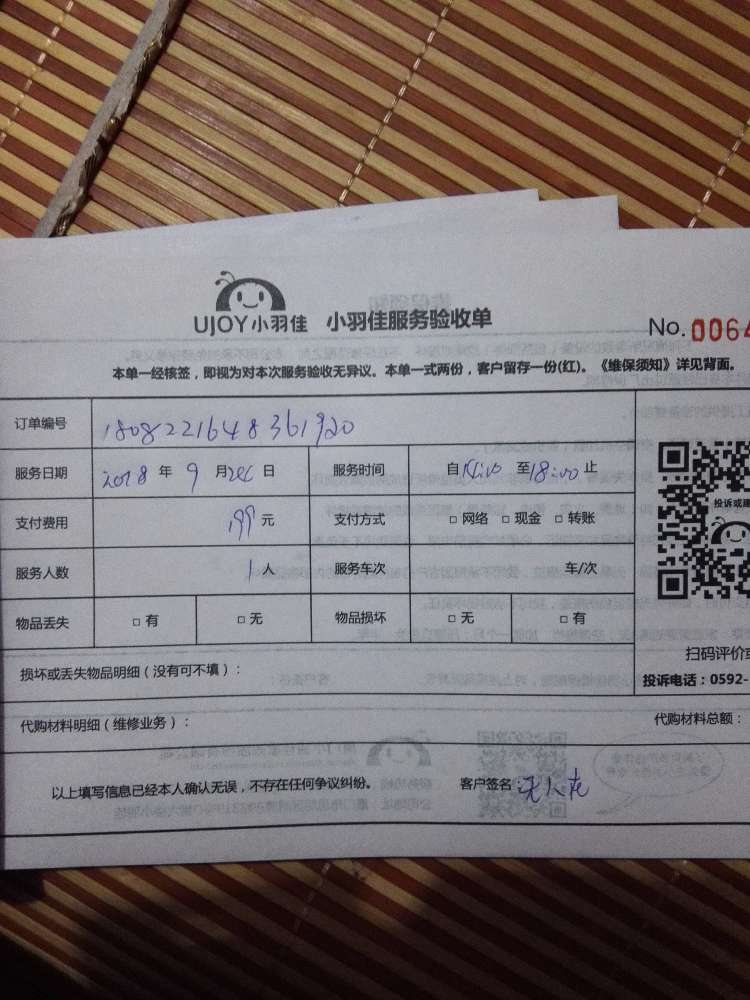 UJOY小羽佳 小羽佳服务验收单
No. 0064
本单一经核签，即视为对本次服务验收无异议。本单一式两份，客户留存一份(红)。《维保须知》详见背面。
订单编号 1808221648361920
服务日期 2018 年 9 月 日 服务时间 自 至18:00止
支付费用 199 元 支付方式 □ 网络 □ 现金 □ 转账
服务人数 1 人 服务车次 车/次
物品丢失 □ 有 □ 无 物品损坏 □ 无 □ 有
投诉或建
扫码评价或
损坏或丢失物品明细（没有可不填）：
投诉电话：0592-
代购材料明细（维修业务）： 代购材料总额：
以上填写信息已经本人确认无误，不存在任何争议纠纷。 客户签名：无人在